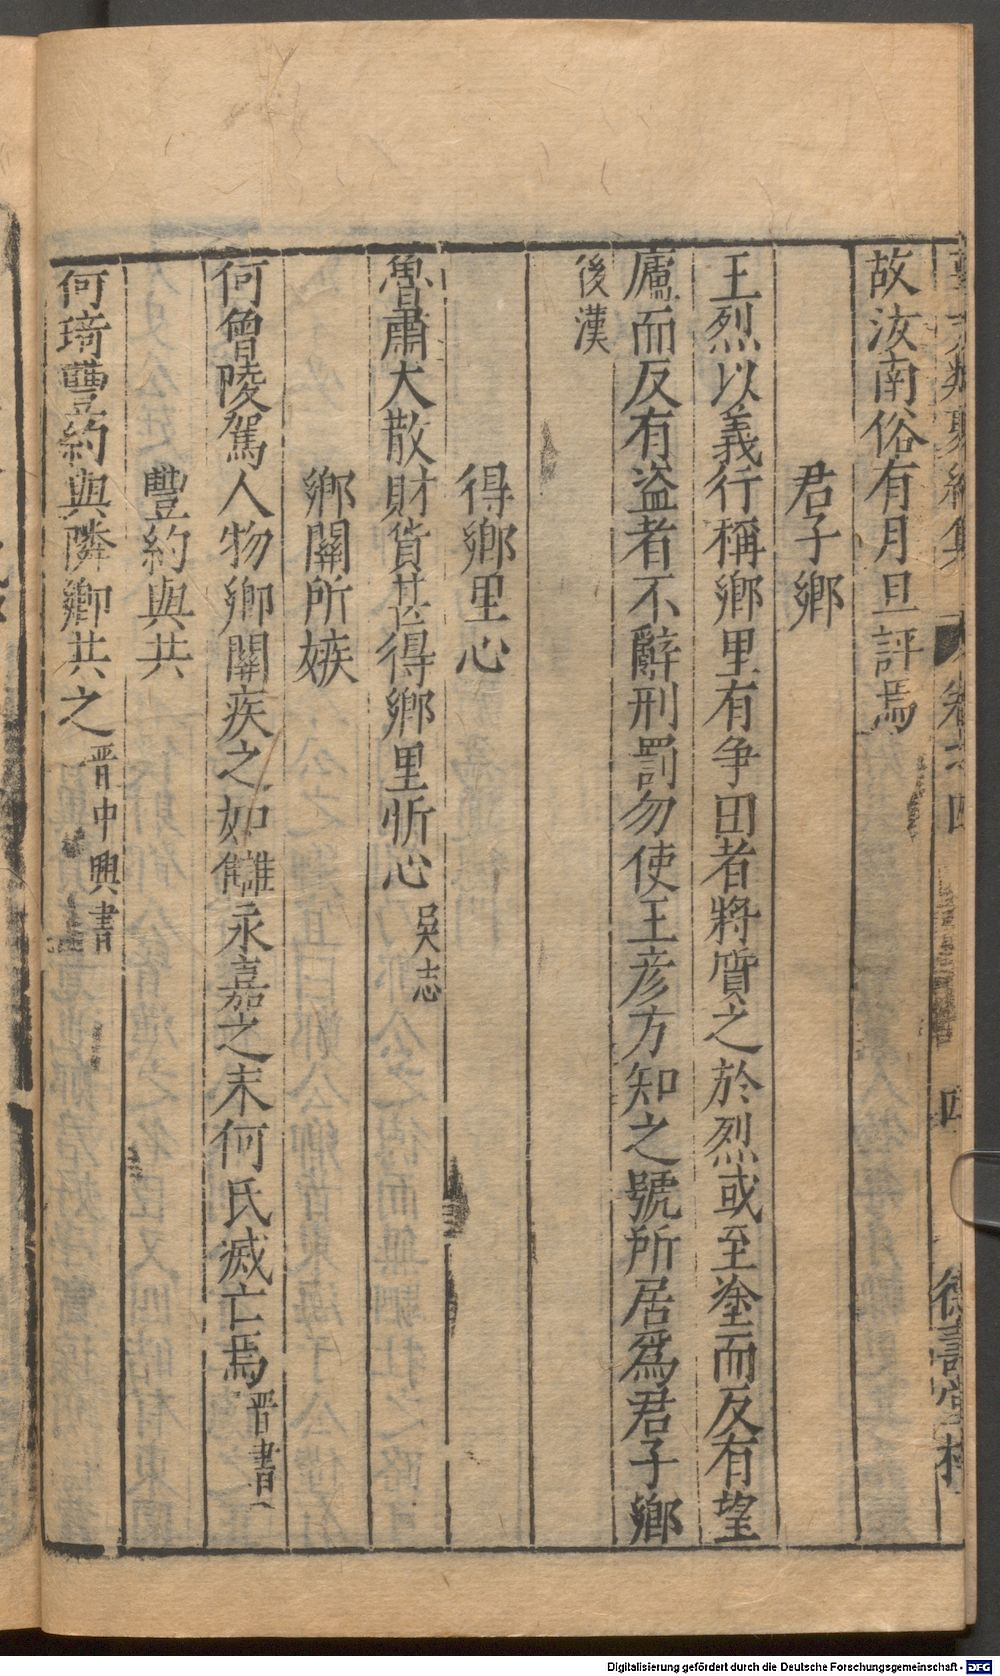 故汝南俗有月旦評焉
君子鄉
王烈以義行稱鄉里有争田者將質之於烈或至塗而反有望
廬而反有盗者不辭刑罰勿使王彦方知之號所居爲君子鄉
後漢
得鄉里心
魯肅大散財貨甚得鄉里忻心吳志
鄉關所嫉
何曾陵駕人物鄉關疾之如讎永嘉之末何氏滅亡焉晋書
豐約與共
何琦豐約與隣鄉共之晋中興書
Digitalisierung gefördert durch die Deutsche Forschungsgemeinschaft - DFG